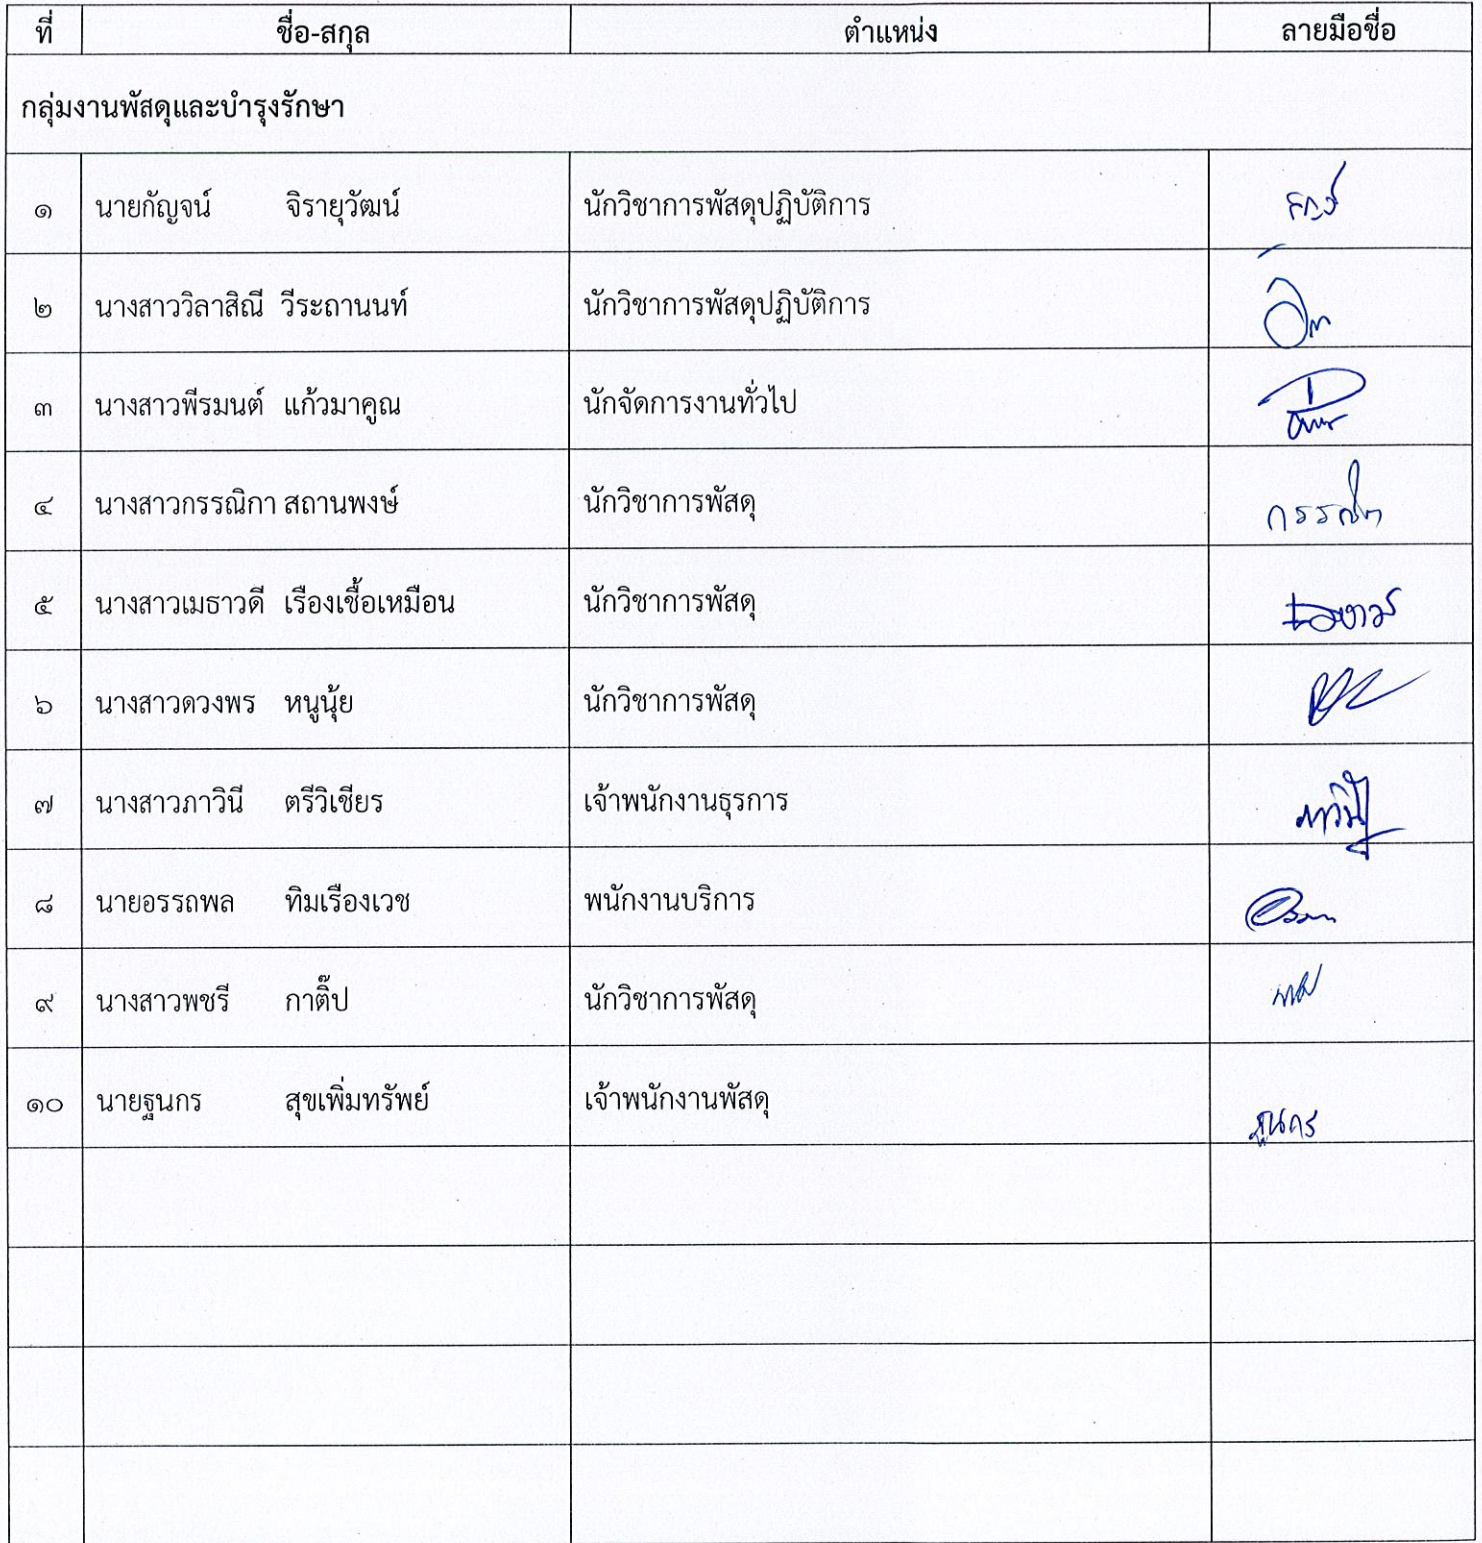 ที่ ชื่อ-สกุล ตำแหน่ง ลายมือชื่อ
กลุ่มงานพัสดุและบำรุงรักษา
๑ นายกัญจน์ จิรายุวัฒน์ นักวิชาการพัสดุปฏิบัติการ
๒ นางสาววิลาสิณี วีระถานนท์ นักวิชาการพัสดุปฏิบัติการ
๓ นางสาวพีรมนต์ แก้วมาคูณ นักจัดการงานทั่วไป
๔ นางสาวกรรณิกา สถานพงษ์ นักวิชาการพัสดุ
๕ นางสาวเมธาวดี เรืองเชื้อเหมือน นักวิชาการพัสดุ
๖ นางสาวดวงพร หนูนุ้ย นักวิชาการพัสดุ
๗ นางสาวภาวินี ตรีวิเชียร เจ้าพนักงานธุรการ ภาวินี
๘ นายอรรถพล ทิมเรืองเวช พนักงานบริการ
๙ นางสาวพชรี กาติ๊ป นักวิชาการพัสดุ
๑๐ นายฐนกร สุขเพิ่มทรัพย์ เจ้าพนักงานพัสดุ ฐนกร